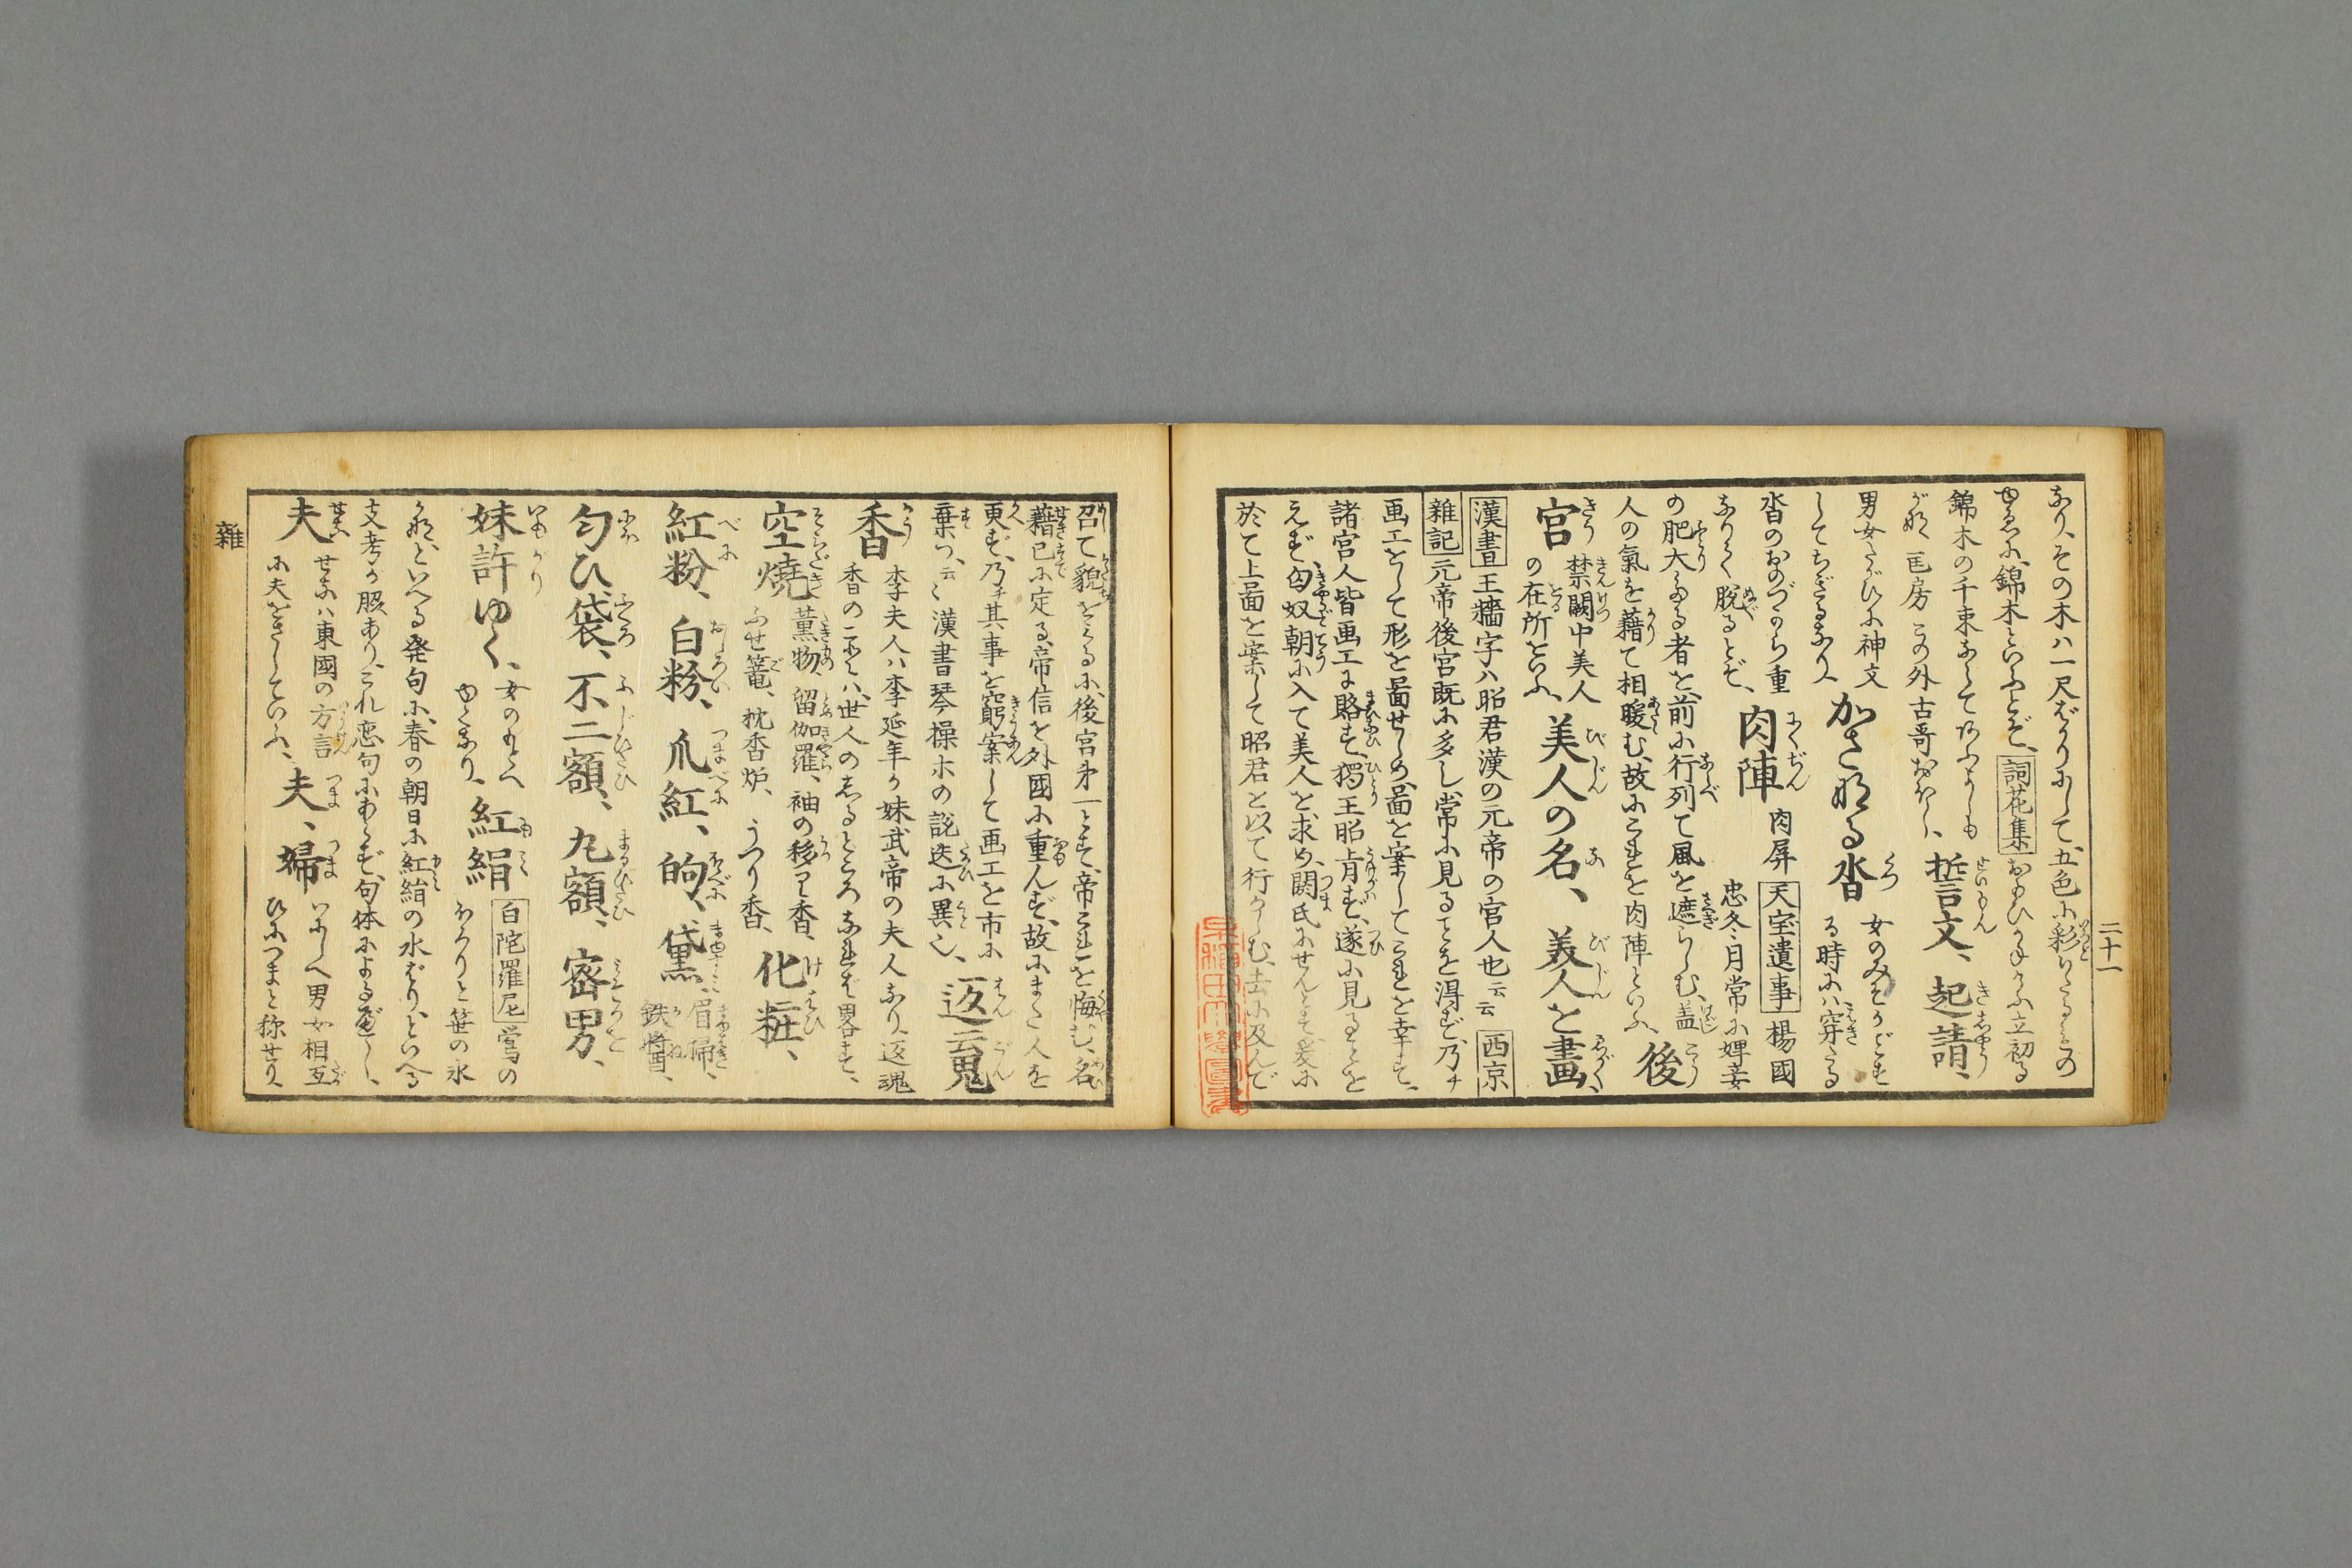 二十一
なり、その木ハ一尺ばかりにして、五色に彩りたるもの
ゆゑに、錦木といふとぞ、詞花集おもひかねけふ立初る
錦木の千束ならてあふよしも
がな 匡房 この外古哥おほし、誓文、起請、
男女たがひに神文
してちぎるなり、かさなる沓 女のみそかごとす
る時にハ穿たる
沓のおのづから重
なりて脱るとぞ、肉陣 肉屏 天宝遺事 楊國
忠冬月常に婢妾
の肥大なる者を前に行列て風を遮らしむ、盖
人の氣を藉て相暖む、故にこれを肉陣といふ、後
宮 禁闕中美人
の在所をいふ、美人の名、美人を畫、
漢書 王牆字ハ昭君漢の元帝の宮人也云云 西京
雜記 元帝後宮既に多し、常に見ることを得ず、乃チ
画工をして形を啚せしめ、啚を案してこれを幸す、
諸宮人皆画工に賂す、獨王昭肯ず、遂に見ることを
えず、匈奴朝に入て美人を求め、閼氏にせんとす、爰に
於て上啚を案して昭君を以て行かしむ、去に及んで
召て貌をみるに、後宮第一とす、帝これを悔む、名
藉已に定る、帝信を外國に重んず、故にまた人を
更ず、乃チ其事を窮案して画工を市に
棄つ、云々 漢書琴操ホの説迭に異也、返魂
香 李夫人ハ李延年が妹武帝の夫人なり、返魂
香のことハ、世人のしるところなれば畧す、
空燒 薫物、留伽羅、袖の移り香、
ふせ篭、枕香炉、うつり香、化粧、
紅粉、白粉、爪紅、的、黛、眉掃、
鉄醤、
匂ひ袋、不二額、丸額、密男、
妹許ゆく、女のもとへ
ゆくなり、紅絹 白陀羅尼 鴬の
ほろりと笹の氷
かな、といへる発句に、春の朝日に紅絹の氷ばり、といへる
支考が脇あり、これ恋句にあらず、句体によるべし、
夫 せなハ東國の方言
に夫をさしていふ、夫、婦 いにしへ男女相互
ひにつまと称せり、
雜